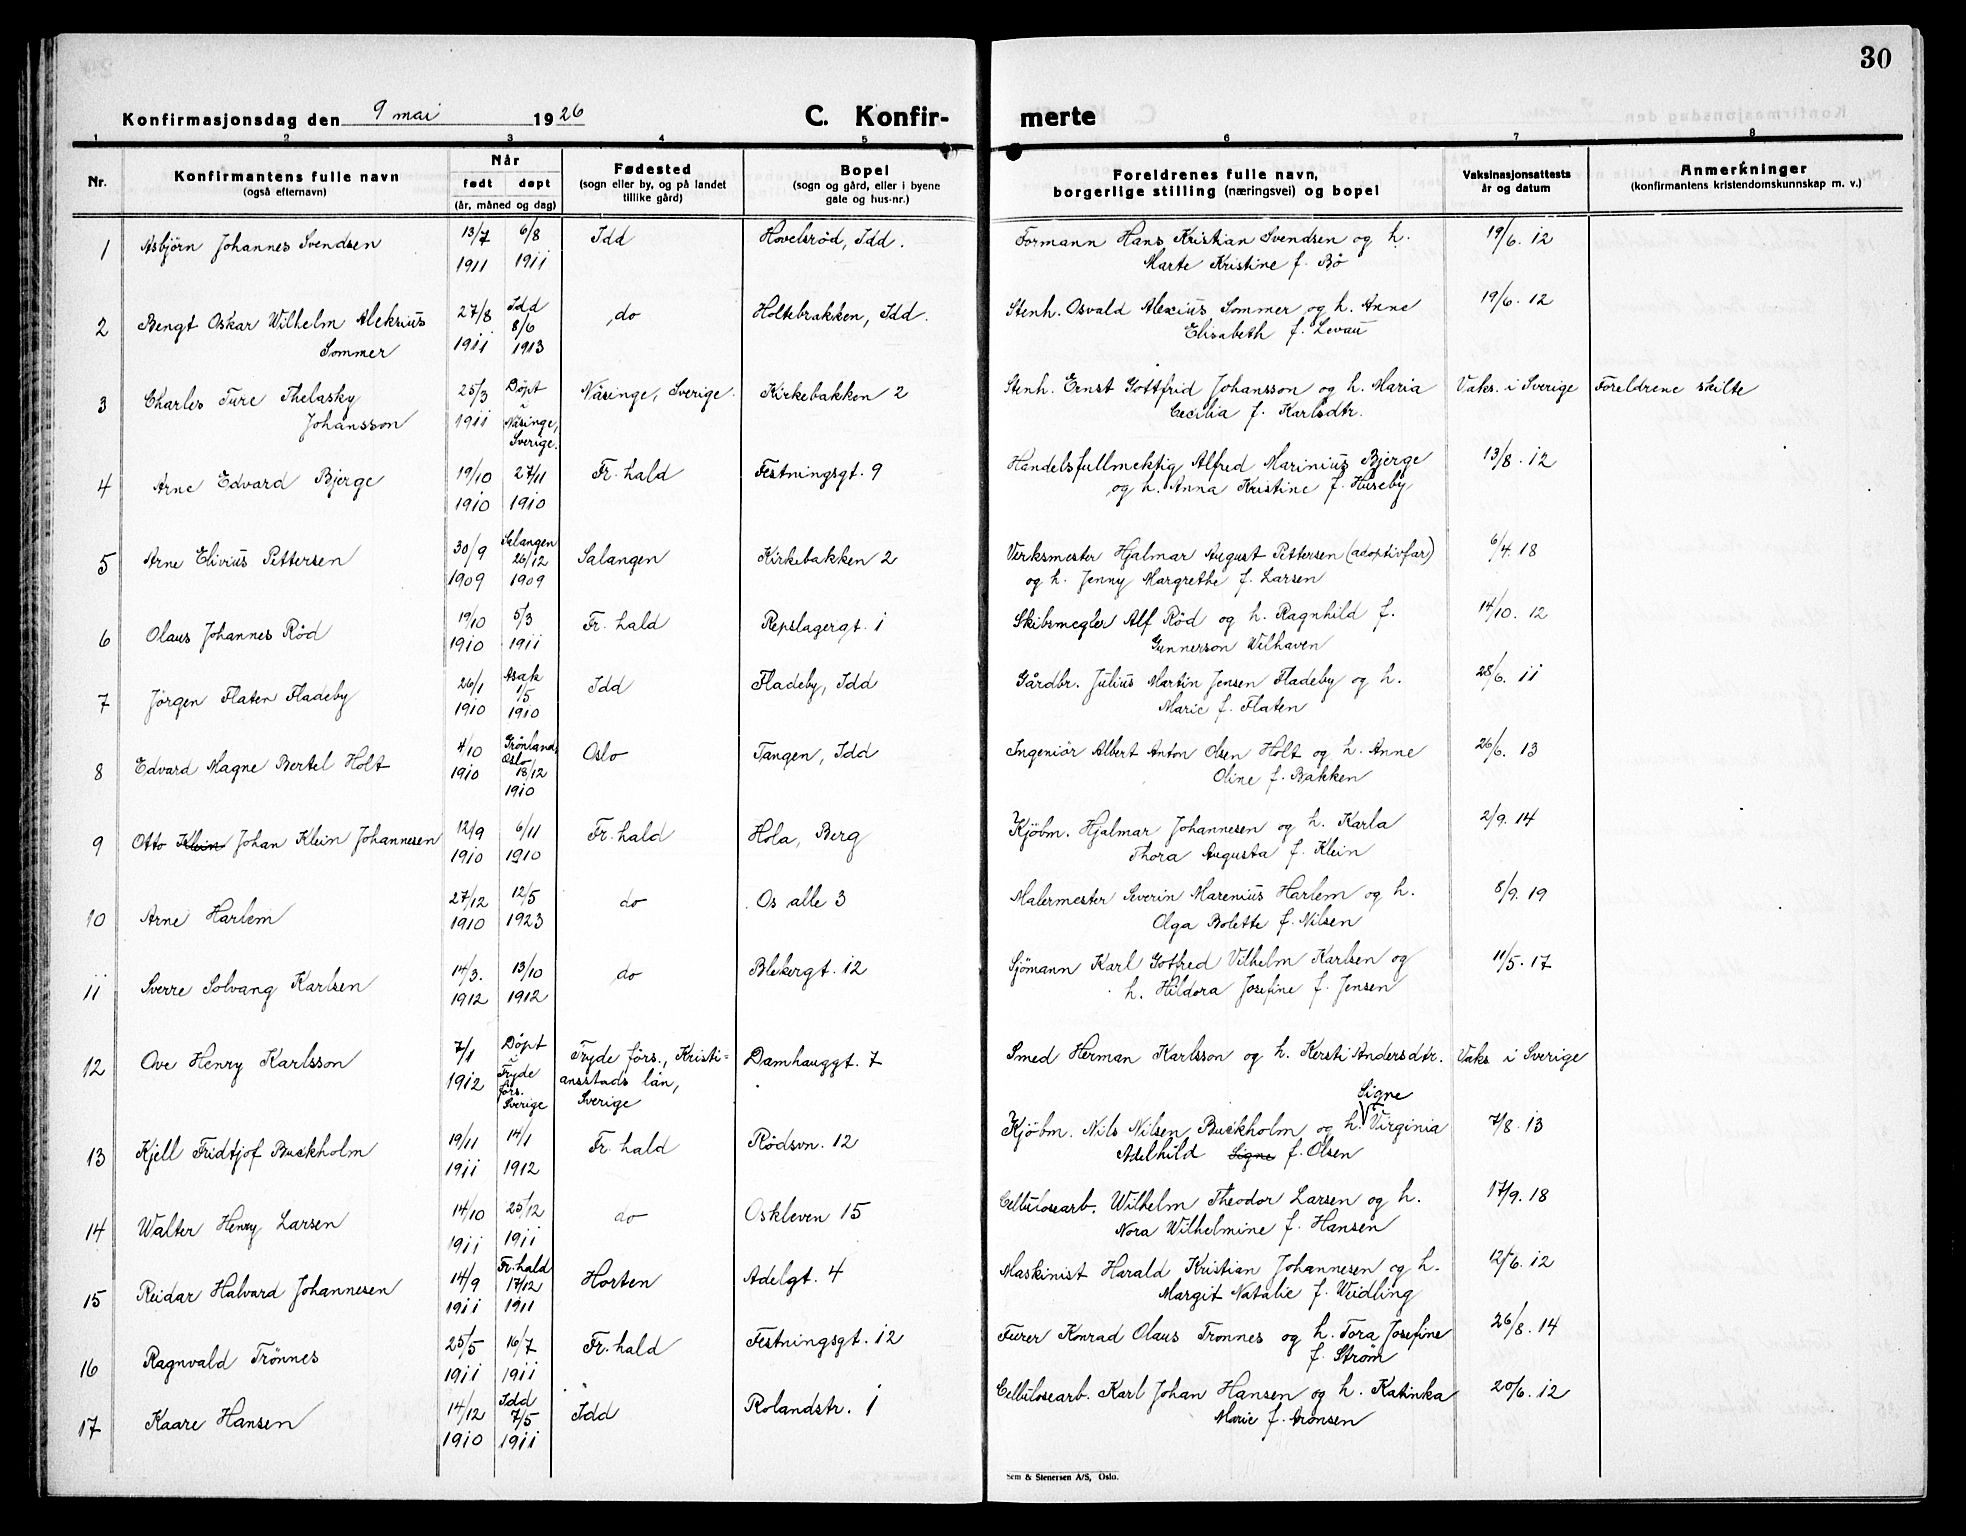 30
Konfirmasjonsdag den 9 mai 1926 C. Konfir- merte
1 2 3 4 5 6 7 8
Nr. Konfirmantens fulle navn (også efternavn) Når født døpt (år, måned og dag) Fødested (sogn eller by, og på landet tillike gård) Bopel (sogn og gård, eller i byene gate og hus-nr.) Foreldrenes fulle navn, borgerlige stilling (næringsvei) og bopel Vaksinasjonsattests år og datum Anmerkninger (konfirmantens kristendomskunnskap m. v.)
1 Asbjörn Johannes Svendsen 13/7 6/8 Idd Hovelsröd, Idd. Formann Hans Kristian Svendsen og h. 19/6. 12
1911 1911 Marte Kristine f. Bö
2 Bengt Oskar Wilhelm Aleksius 27/8 Idd 8/6 do Holtebrakken, Idd. Stenh. Osvald Alexius Sommer og h. Anne 19/6. 12
Sommer 1911 1913 Elisabeth f. Levau
3 Charles Ture Thelasky 25/3 Döpt i Näsinge, Sverige Kirkebakken 2 Stenh. Ernst Gottfrid Johansson og h. Maria Vaks. i Sverige Foreldrene skilte
Johansson 1911 Näsinge, Sverige. Cecilia f. Karlsdtr.
4 Arne Edvard Bjerge 19/10 27/11 Fr. hald Festningsgt. 9 Handelsfullmektig Alfred Marinius Bjerge 13/8. 12
1910 1910 og h. Anna Kristine f. Huseby
5 Arne Elivius Pettersen 30/9 Salangen 26/12 Salangen Kirkebakken 2 Verksmester Hjalmar August Pettersen (adoptivfar) 6/4. 18
1909 1909 og h. Jenny Margrethe f. Larsen
6 Olaus Johannes Röd 19/10 5/3 Fr. hald Repslagergt. 1 Skibsmegler Alf Röd og h. Ragnhild f. 14/10. 12
1910 1911 Gunnerson Wilhaven
7 Jörgen Flaten Fladeby 26/1 Asak 1/5 Idd Fladeby, Idd Gårdbr. Julius Martin Jensen Fladeby og h. 28/6. 11
1910 1910 Marie f. Flaten
8 Edvard Magne Bertel Holt 4/10 Grönland, Oslo 18/12 Oslo Tangen, Idd Ingeniör Albert Anton Olsen Holt og h. Anne 26/6. 13
1910 1910 Oline f. Bakken
9 Otto Klein Johan Klein Johannesen 12/9 6/11 Fr. hald Hola, Berg Kjöbm. Hjalmar Johannesen og h. Karla 2/9. 14
1910 1910 Thora Augusta f. Klein
10 Arne Harlem 27/12 12/5 do Os alle 3 Malermester Severin Marenius Harlem og h. 8/9. 19
1910 1923 Olga Bolette f. Nilsen
11 Sverre Solvang Karlsen 14/3. 13/10 do Blekergt. 12 Sjömann Karl Gotfred Vilhelm Karlsen og 11/5. 17
1912 1912 h. Hildora Josefine f. Jensen
12 Ove Henry Karlsson 7/1 Döpt i Tryde förs., Kristi= Damhauggt. 7 Smed Herman Karlsson og h. Kersti Andersdtr. Vaks i Sverige
1912 Tryde förs. Sverige ansstads län, Sverige
Signe
13 Kjell Fridtjof Buckholm 19/11 14/1 Fr. hald Rödsvn. 12 Kjöbm. Nils Nilsen Buckholm og h. Virginia 7/8. 13
1911 1912 Adelhild Signe f. Olsen
14 Walter Henry Larsen 14/10 25/12 do Oskleven 15 Cellulosearb. Wilhelm Theodor Larsen og h. 17/9. 18
1911 1911 Nora Wilhelmine f. Hansen
15 Reidar Halvard Johannesen 14/9 Fr. hald 17/12 Horten Adelgt. 4 Maskinist Harald Kristian Johannesen og h. 12/6. 12
1911 1911 Margit Natalie f. Weidling
16 Ragnvald Trönnes 25/5 16/7 Fr. hald Festningsgt. 12 Furer Konrad Olaus Tronnes og h. Tora Josefine 26/8. 14
1911 1911 f. Ström
17 Kaare Hansen 14/12 Idd 7/5 Idd Rolandstr. 1 Cellulosearb. Karl Johan Hansen og h. Katinka 20/6. 12
1910 1911 Marie f. Aronsen
Sem & Stenersen A/S, Oslo.